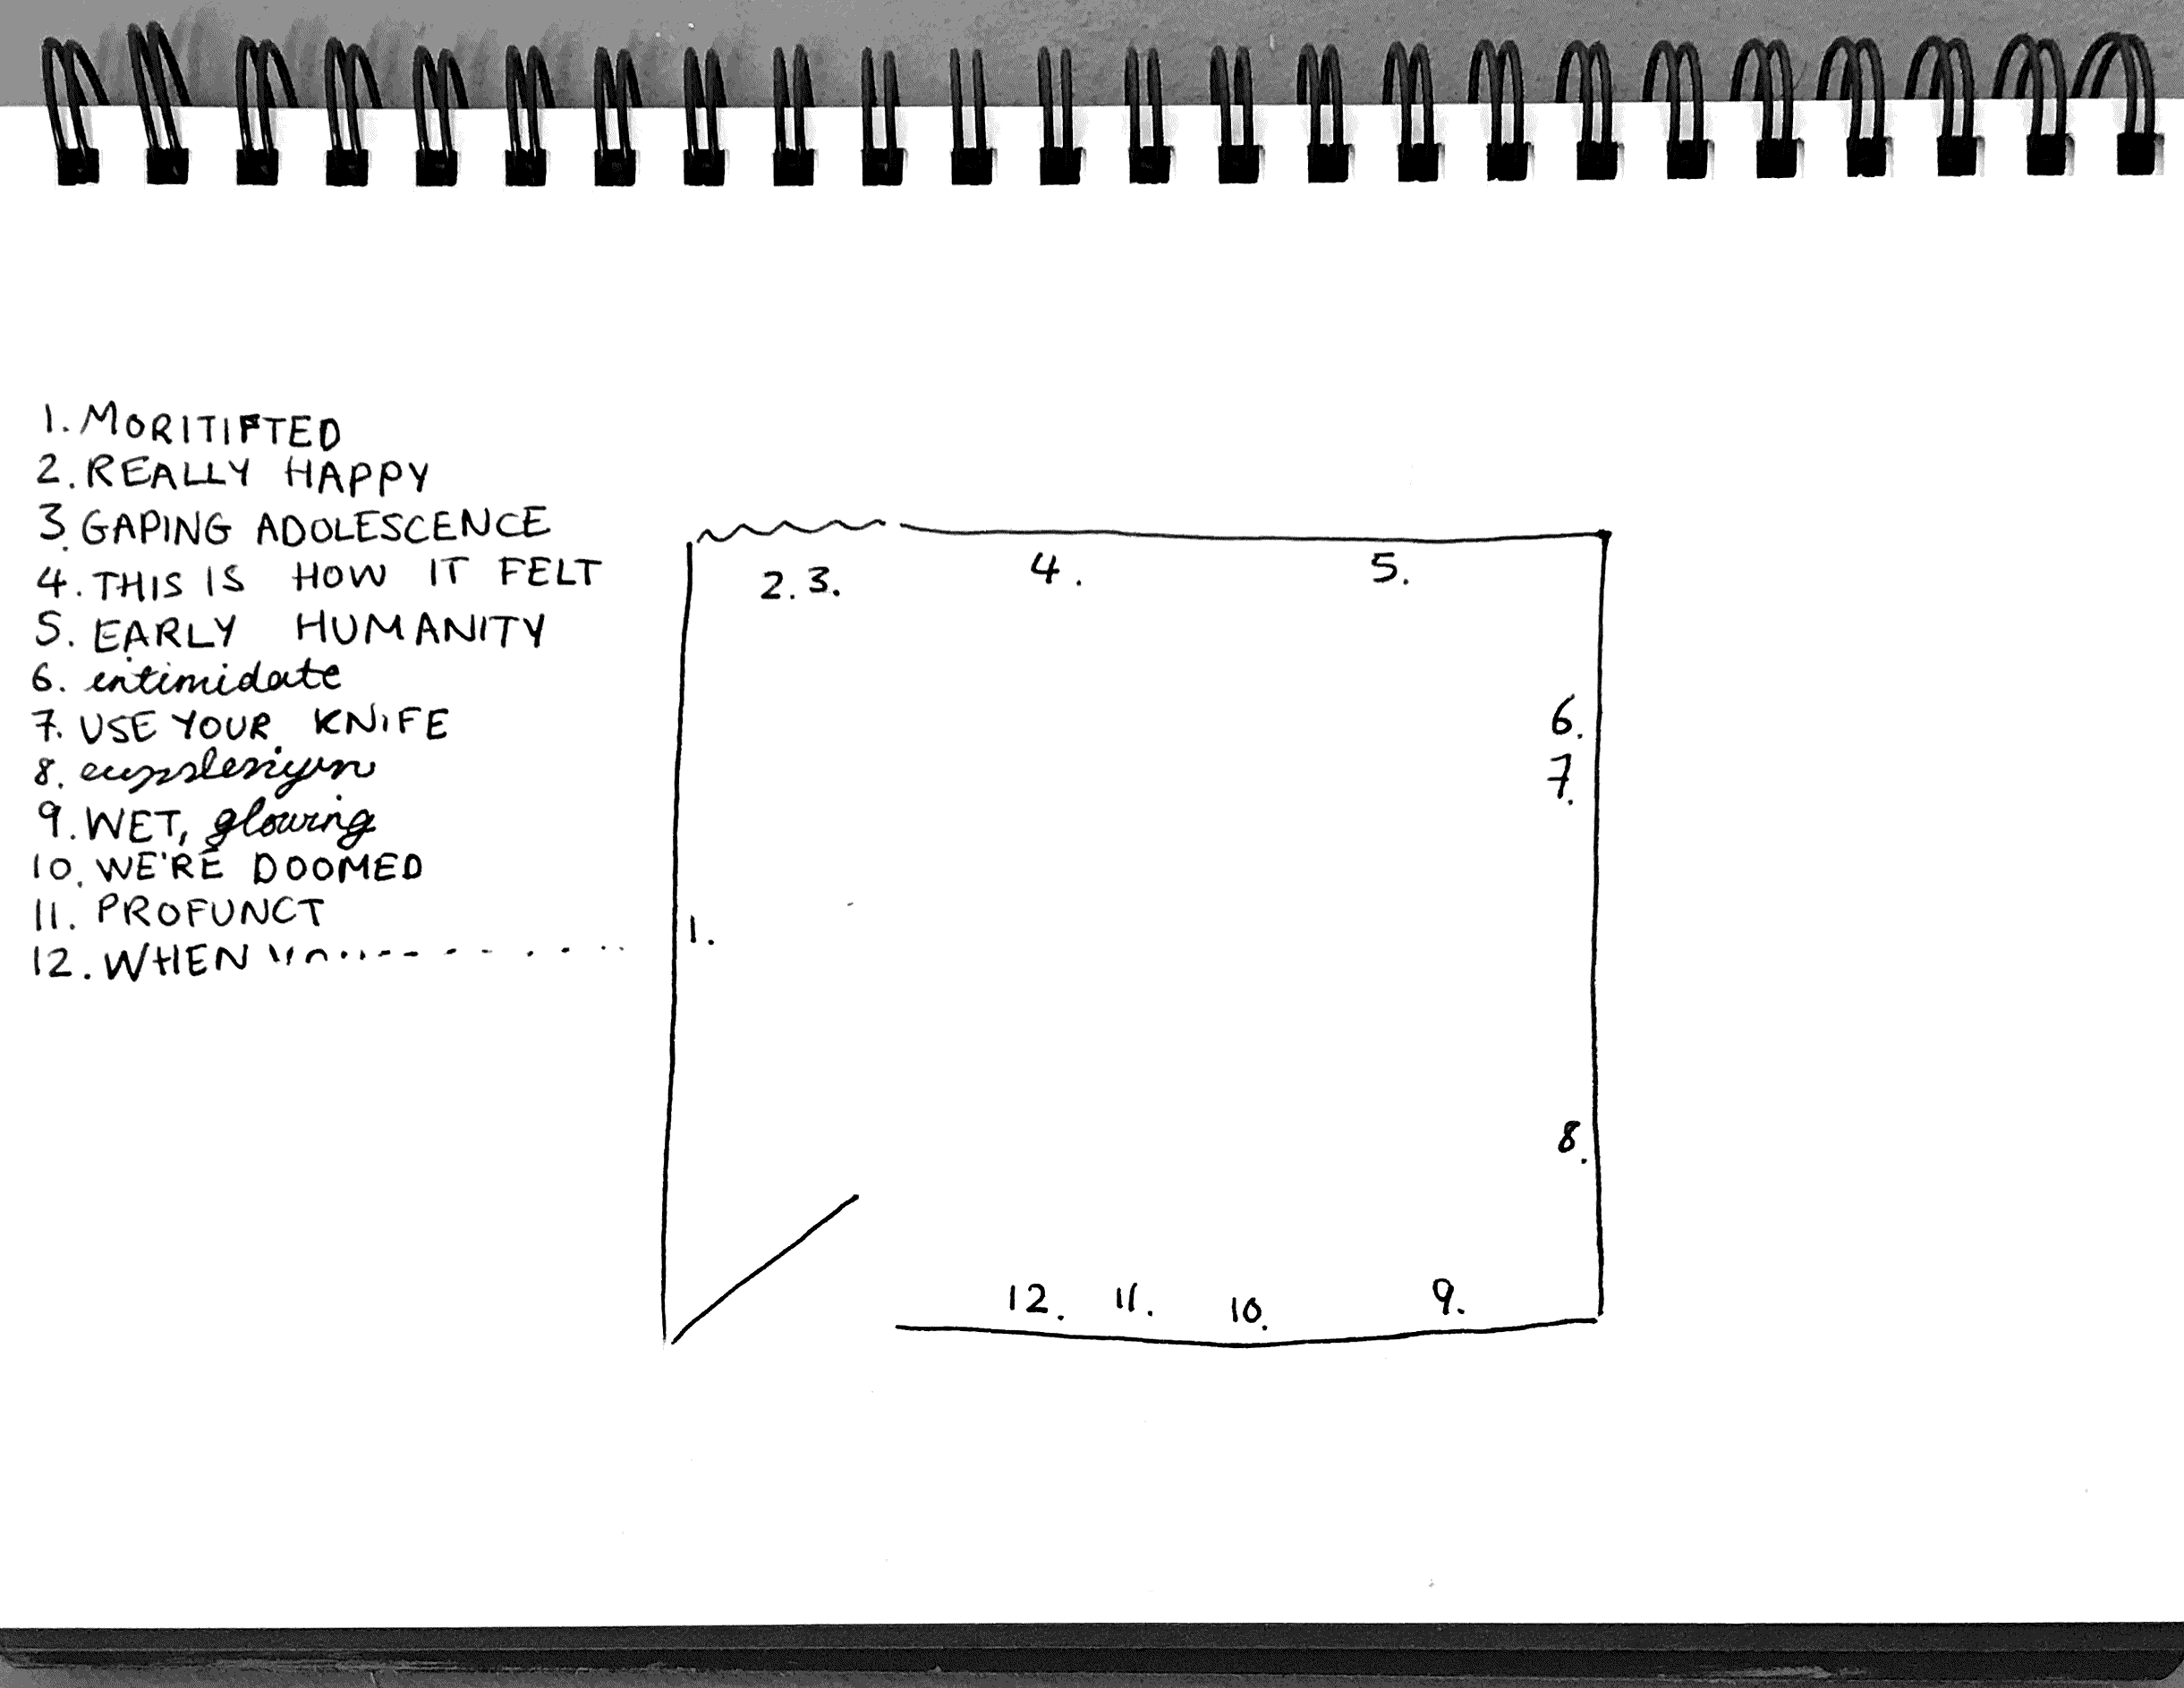 1. MORITIFTED
2. REALLY HAPPY
3. GAPING ADOLESCENCE
4. THIS IS HOW IT FELT
5. EARLY HUMANITY
6. intimidate
7. USE YOUR KNIFE
8.
9. WET, glowing
10. WE'RE DOOMED
11. PROFUNCT
12. WHEN
2. 3. 4. 5.
6.
7.
1.
8.
12. 11. 10. 9.